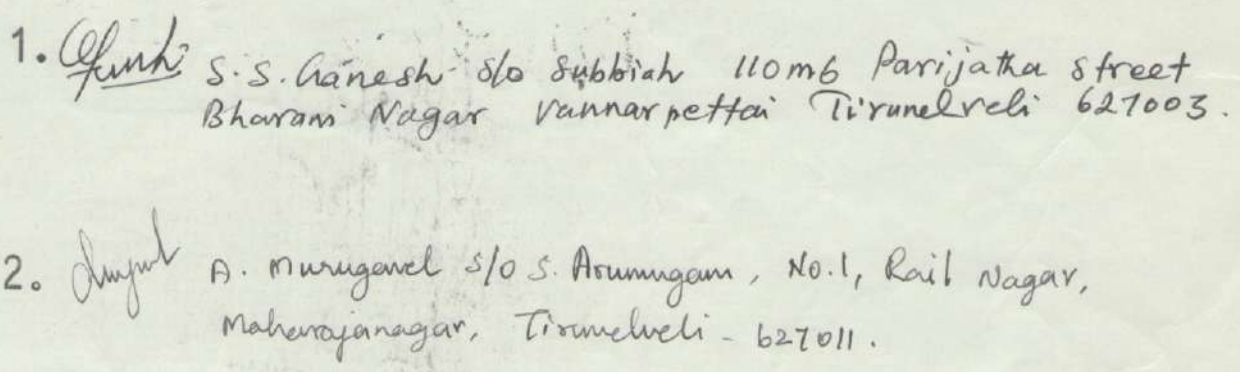 1. S.S. Ganesh S/o Subbiah 110m6 Parijatha Street
Bharani Nagar Vannarpettai Tirunelveli 627003.
2. A. Murugavel S/o S. Arumugam, No.1, Rail Nagar,
Maharajanagar, Tirunelveli - 627011.